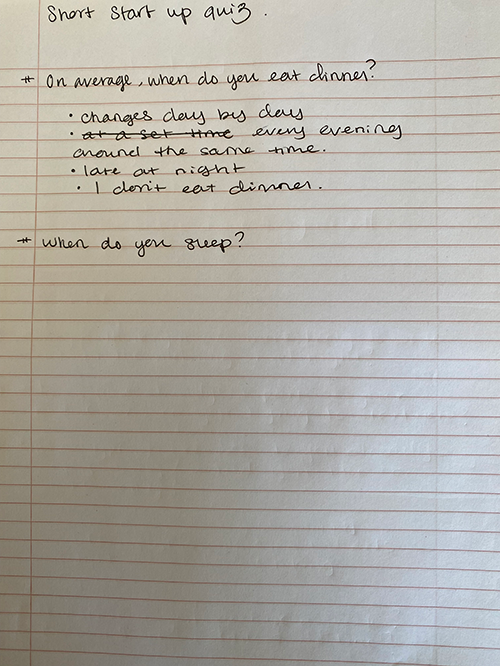 Short Start up quiz.
# On average, when do you eat dinner?
• changes day by day
• at a set time every evening
around the same time.
• late at night
• I don't eat dinner.
# When do you sleep?